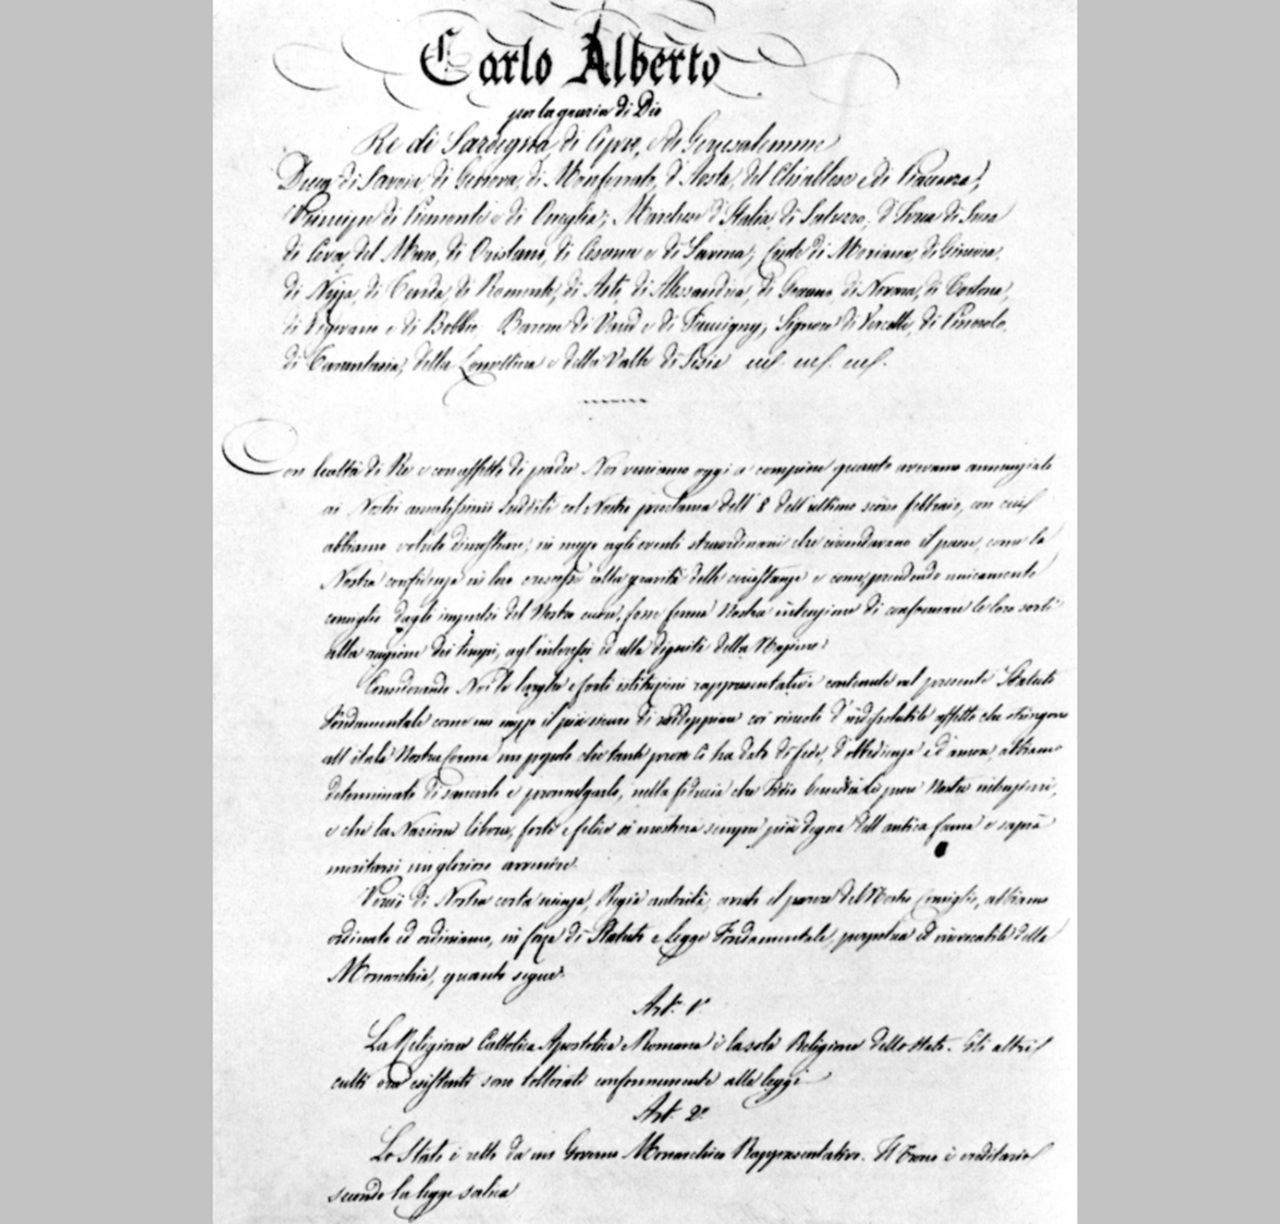 Carlo Alberto
per la grazia di Dio
Re di Sardegna, di Cipro, e di Gerusalemme
Duca di Savoia, di Genova, di Monferrato, d'Aosta, del Chiablese e di Piacenza;
Principe di Piemonte e di Oneglia; Marchese d'Italia, di Saluzzo, d'Ivrea, di Susa
di Ceva, del Maro, di Oristano, di Cesana e di Savona; Conte di Moriana, di Ginevra,
di Nizza, di Tenda, di Romonte, di Asti, di Alessandria, di Goceano, di Novara, di Tortona,
di Vigevano e di Bobbio; Barone di Vaud e di Faucigny; Signore di Vercelli, di Pinerolo,
di Tarantasia, della Lomellina e della Valle di Sesia ecc. ecc. ecc.
Con lealtà di Re e con affetto di padre Noi veniamo oggi a compiere quanto avevamo annunziato
ai Nostri amatissimi sudditi col Nostro proclama dell' 8 dell'ultimo scorso febbraio, con cui
abbiamo voluto dimostrare, in mezzo agli eventi straordinari che circondavano il paese, come la
Nostra confidenza in loro crescesse colla gravità delle circostanze e come, prendendo unicamente
consiglio dagli impulsi del Nostro cuore, fosse ferma Nostra intenzione di conformare le loro sorti
alla ragione dei tempi, agl'interessi ed alla dignità della Nazione.
Considerando Noi le larghe e forti istituzioni rappresentative contenute nel presente Statuto
Fondamentale come un mezzo il più sicuro di raddoppiare coi vincoli d'indissolubile affetto che stringono
all'itala Nostra Corona un popolo che tante prove Ci ha dato di fede, d'obbedienza e d'amore, abbiamo
determinato di sancirlo e promulgarlo, nella fiducia che Iddio benedirà le pure Nostre intenzioni,
e che la Nazione libera, forte e felice si mostrerà sempre più degna dell'antica fama e saprà
meritarsi un glorioso avvenire.
Perciò di Nostra certa scienza, Regia autorità, avuto il parere del Nostro Consiglio, abbiamo
ordinato ed ordiniamo, in forza di Statuto e Legge Fondamentale, perpetua ed irrevocabile della
Monarchia, quanto segue:
Art. 1°
La Religione Cattolica Apostolica e Romana è la sola Religione dello Stato. Gli altri
culti ora esistenti sono tollerati conformemente alle leggi
Art. 2°
Lo Stato è retto da un Governo Monarchico Rappresentativo. Il Trono è ereditario
secondo la legge salica